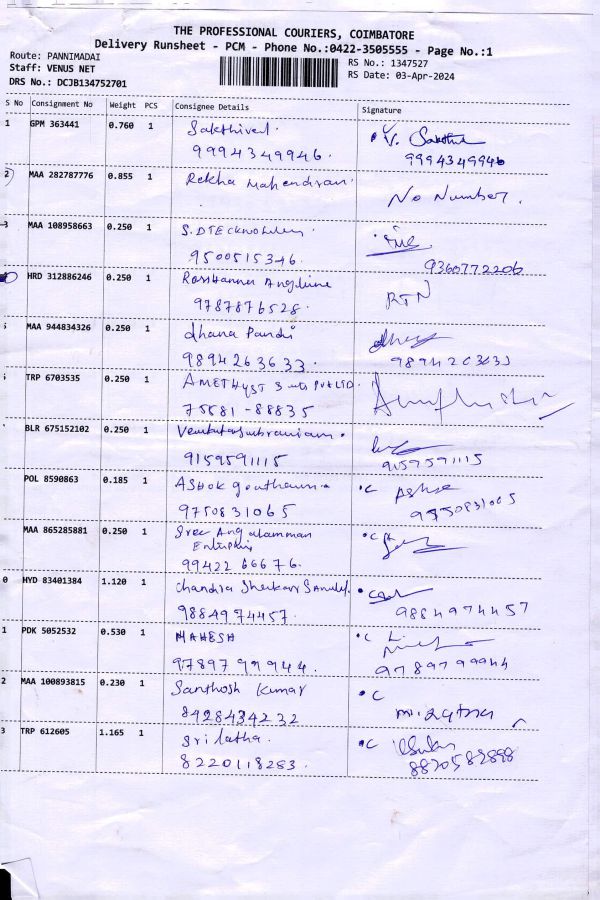 THE PROFESSIONAL COURIERS, COIMBATORE
Delivery Runsheet - PCM - Phone No.:0422-3505555 - Page No.:1
Route: PANNIMADAI
Staff: VENUS NET
DRS No.: DCJB134752701
RS No.: 1347527
RS Date: 03-Apr-2024
S No Consignment No Weight PCS Consignee Details Signature
1 GPM 363441 0.760 1 Sakthivel. V. Sakthi
9994349946. 9994349946
2 MAA 282787776 0.855 1 Rekha Mahendiran. No Number.
3 MAA 108958663 0.250 1
9500515346. 9360772206
HRD 312886246 0.250 1 RTN
9787876528.
MAA 944834326 0.250 1 dhana Pandi
9894263633.
TRP 6703535 0.250 1 AMETHYST PVT LTD.
75581-88835
BLR 675152102 0.250 1 Venkatasubraniam.
9159591115 9159591115
POL 8590863 0.185 1 Ashok Gouthaman C
9750831065
MAA 865285881 0.250 1 Sree Angalamman C
99422 66676.
0 HYD 83401384 1.120 1 Chandra Shekar
9884974457. 9884974457
1 PDK 5052532 0.530 1 MAHESH C
9789799944. 9789799944
2 MAA 100893815 0.230 1 Santhosh Kumar C
8428434232
3 TRP 612605 1.165 1 Srilatha. C
8220118283. 8870582898